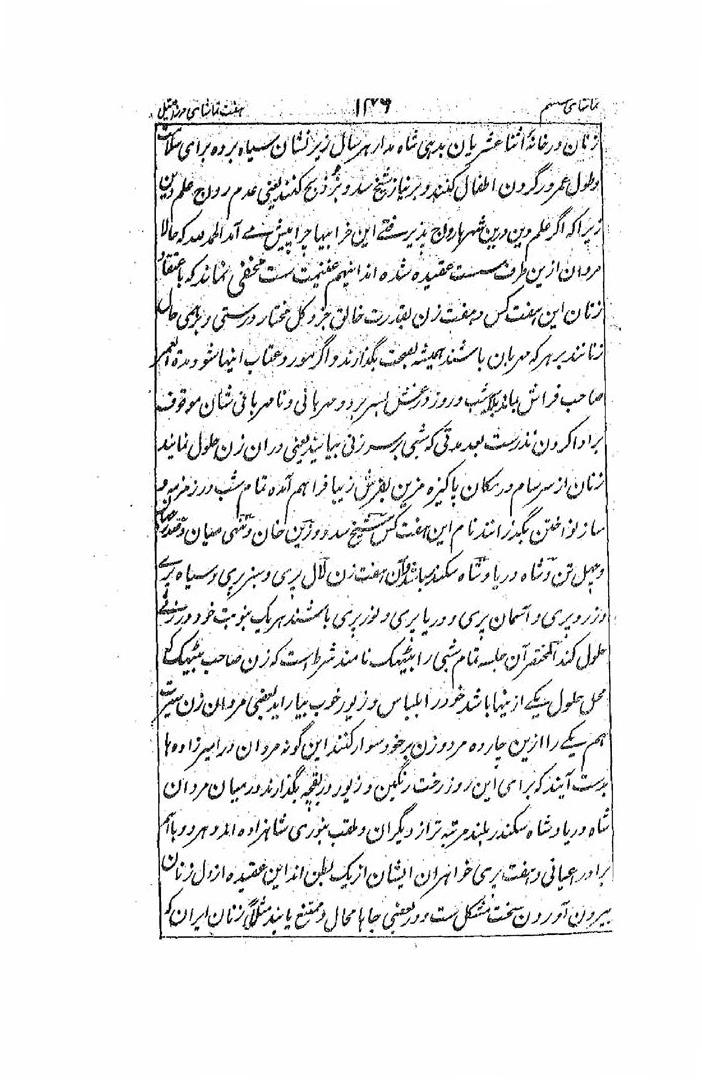 تماشای ششم ۱۲۶ هفت تماشای مرزا قتیل
زنان در خانهٔ اثنا عشریان بدهی شاه مدار هر سال زیر نشان سیاه برده برای سلامت
و طول عمر در گردن اطفال کنند و بر نیاز شیخ سدو بز ذبح کنند یعنی عدم رواج علم دین
زیرا که اگر علم دین درین شهرها رواج پذیرفتے این خرابیها چرا پیش مے آمد الحمد لله که حالا
مردان ازین طرف سست عقیده شده اند اینهم غنیمت ست مخفی نماند که باعتقاد
زنان این هفت کس و هفت زن بقدرت خالق جزو کل مختار درستی و برهمی حال
زنانند بر هر که مهربان باشند همیشه بصحت بگذارند و اگر مورد عتاب اینها شود مدة العمر
صاحب فراش بماند بلا شب و روز در غسل بسر برد و مهربانی و نا مهربانی شان موقوف
بر ادا کردن نذرست بعد مدتی که شبی بر سر زنی بیایند یعنی در ان زن حلول نمایند
زنان از سر شام در مکان پاکیزه مزین بفرش زیبا فراهم آمده تمام شب در زمزمه و
ساز نواختن بگذرانند نام این هفت کس شیخ سدو و زین خان و ننهی میان و صدر جهان
و چهل تن و شاه دریا و شاه سکندر باشد و آن هفت زن لال پری و سبز پری و سیاه پری
و زرد پری و آسمان پری و دریا پری و نور پری باشند هر یک بنوبت خود در زنے
حلول کند المختصر آن جلسه تمام شبی را بیٹھک نامند شرط است که زن صاحب بیٹھک که
محل حلول یکے از ینها باشد خود را بلباس و زیور خوب بیاراید بعضی مردان زن سیرت
هم یکے را ازین چارده مرد و زن بر خود سوار کنند این گونه مردان در امیرزاده ها
بدست آیند که برای این روز رخت رنگین و زیور در بقچه بگذارند در میان مردان
شاه دریا و شاه سکندر بلند مرتبه تر از دیگران و ملقب بنوری شاهزاده اند و هر دو باهم
برادر عیانی و هفت پری خواهران ایشان از یک بطن اند این عقیده از دل زنان
بیرون آوردن سخت مشکل ست و در بعضی جاها محال و ممتنع یابند مثلاً زنان ایران که